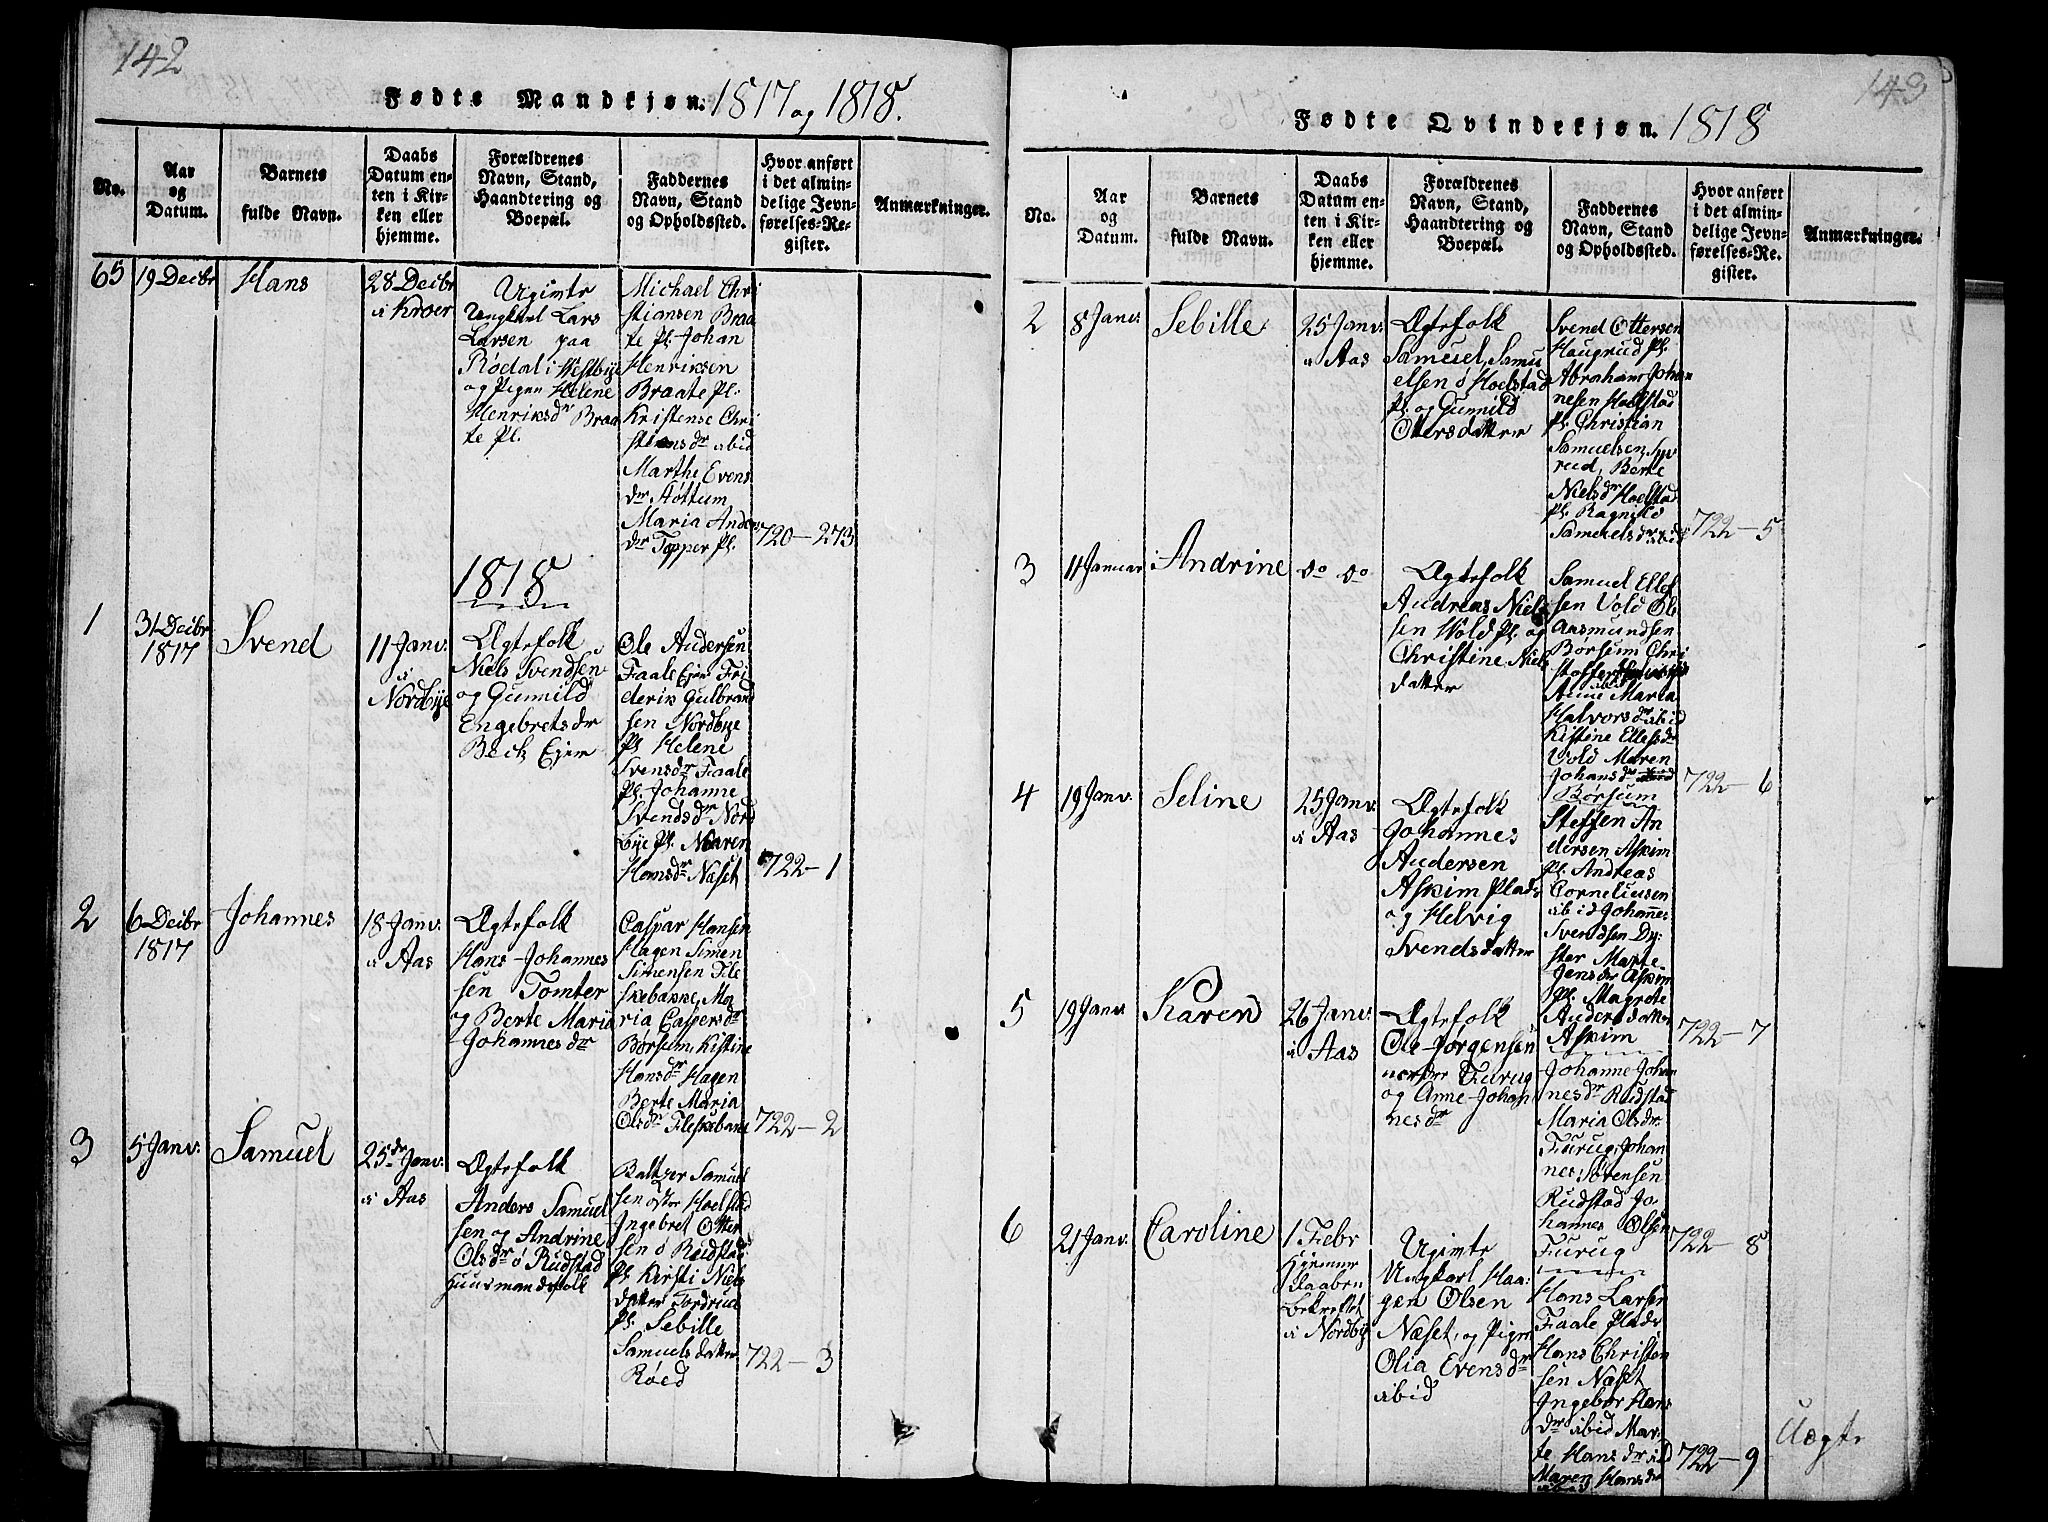 142
Fødte Mandkjøn. 1817 og 1818.
No.
Aar
og
Datum.
Barnets
fulde Navn.
Daabs
Datum en-
ten i Kir-
ken eller
hjemme.
Forældrenes
Navn, Stand,
Haandtering og
Boepæl.
Faddernes
Navn, Stand
og Opholdssted.
Hvor anført
i det almin-
delige Jevn-
førelses-Re-
gister.
Anmærkninger.
65
19 Decbr
Hans
28 Decbr
i Kroer
Ugivte
Ungkarl Lars
Larsen paa
Rødal i Westbÿe
og Pigen Helene
Henriksdr Braa
te Pl.
Michael Chri
stiansen Braa
te Pl. Johan
Henriksen
Braate Pl.
Kristense Chri
stiansdr ibid
Marthe Evens
dr Tøttum
Maria Anders
dr Topper Pl.
720-273
1818
1
31 Decbr
1817
Svend
11 Janv.
i
Nordbÿe
Ægtefolk
Niels Svendsen
og Gunnild
Engebretsdr
Bech Ejer
Ole Andersen
Faale Ejer Fri
derik Gulbrand
sen Nordbÿe
Pl. Helene
Svensdr Faale
Pl. Johanne
Svendsdr Nord
bÿe Pl. Maren
Hansdr Naset
722-1
2
6 Decbr
1817
Johannes
18 Janv.
i Aas
Ægtefolk
Hans Johannes
sen Tomter
og Berte Maria
Johannesdr
Caspar Hansen
Hagen Simen
Simensen Fle
skebakke, Ma
ria Caspersdr
Børsum, Kistine
Hansdr Hagen
Berte Maria
Olsdr Fleskebakke
722-2
3
5 Janv.
Samuel
25de Janv.
i Aas
Ægtefolk
Anders Samuel
sen og Andrine
Olsdr ø Rudstad
Huusmandsfolk
Baltzer Samuel
sen østre Hoelstad
Ingebret Otter
sen ø Rudstad
Pl. Kirsti Niels
datter Tordrud
Pl. Sebille
Samuelsdatter
Røed
722-3
143
Fødte Qvindekjøn. 1818
No.
Aar
og
Datum.
Barnets
fulde Navn.
Daabs
Datum en-
ten i Kir-
ken eller
hjemme.
Forældrenes
Navn, Stand,
Haandtering og
Boepæl.
Faddernes
Navn, Stand
og Opholdssted.
Hvor anført
i det almin-
delige Jevn-
førelses-Re-
gister.
Anmærkninger.
2
8 Janv
Sebille
25 Janv.
i Aas
Ægtefolk
Samuel Samu
elsen ø Hoelstad
Pl. og Gunnild
Ottersdatter
Svend Ottersen
Haugrud Pl.
Abraham Johan
nesen Hoelstad
Pl. Christian
Samuelsen
rud, Berte
Nielsdr Hoelstad
Pl. Ragnild
Samuelsdr ibid
722-5
3
11 Januar
Andrine
do do
Ægtefolk
Andreas Niel
sen Wold Pl. og
Christine Niels
datter
Samuel Ellef
sen Vold Ole
Aasmundsen
Børsum Chri
stoffer
ibid
Anne Maria
Halvorsdr ibid
Kistine Ellefsdr
Vold Maren
Johansdr
Børsum
722-6
4
19 Janv.
Seline
25 Janv.
i Aas
Ægtefolk
Johannes
Andersen
Askim Plads
og Helvig
Svendsdatter
Steffen An
dersen Askim
Pl. Andreas
Corneliusen
ibid Johannes
Svendsen Dy
ster Marte
Jensdr Askim
Pl. Magrete
Andersdatter
Askim
722-7
5
19 Janv
Karen
26 Janv.
i Aas
Ægtefolk
Ole Jørgensen
nordre Furug
og Anne Johan
nesdr
Johanne Johan
nesdr Rudstad
Maria Olsdr
Furug, Johan
nes Sørensen
Rudstad Jo
hannes Olsen
Furug
722-8
6
21 Janv.
Caroline
1 Febr
Hjemme
daaben
bekreftet
i Nordbÿe
Ugivte
Ungkarl Haa
gen Olsen
Næset, og Pigen
Olia Evensdr
ibid
Hans Larsen
Faale Plads
Hans Christen
sen Næset
Ingebor Hans
dr ibid Mar
te Hansdr ibid
Maren Hansdr
ibid
722-9
Uægte